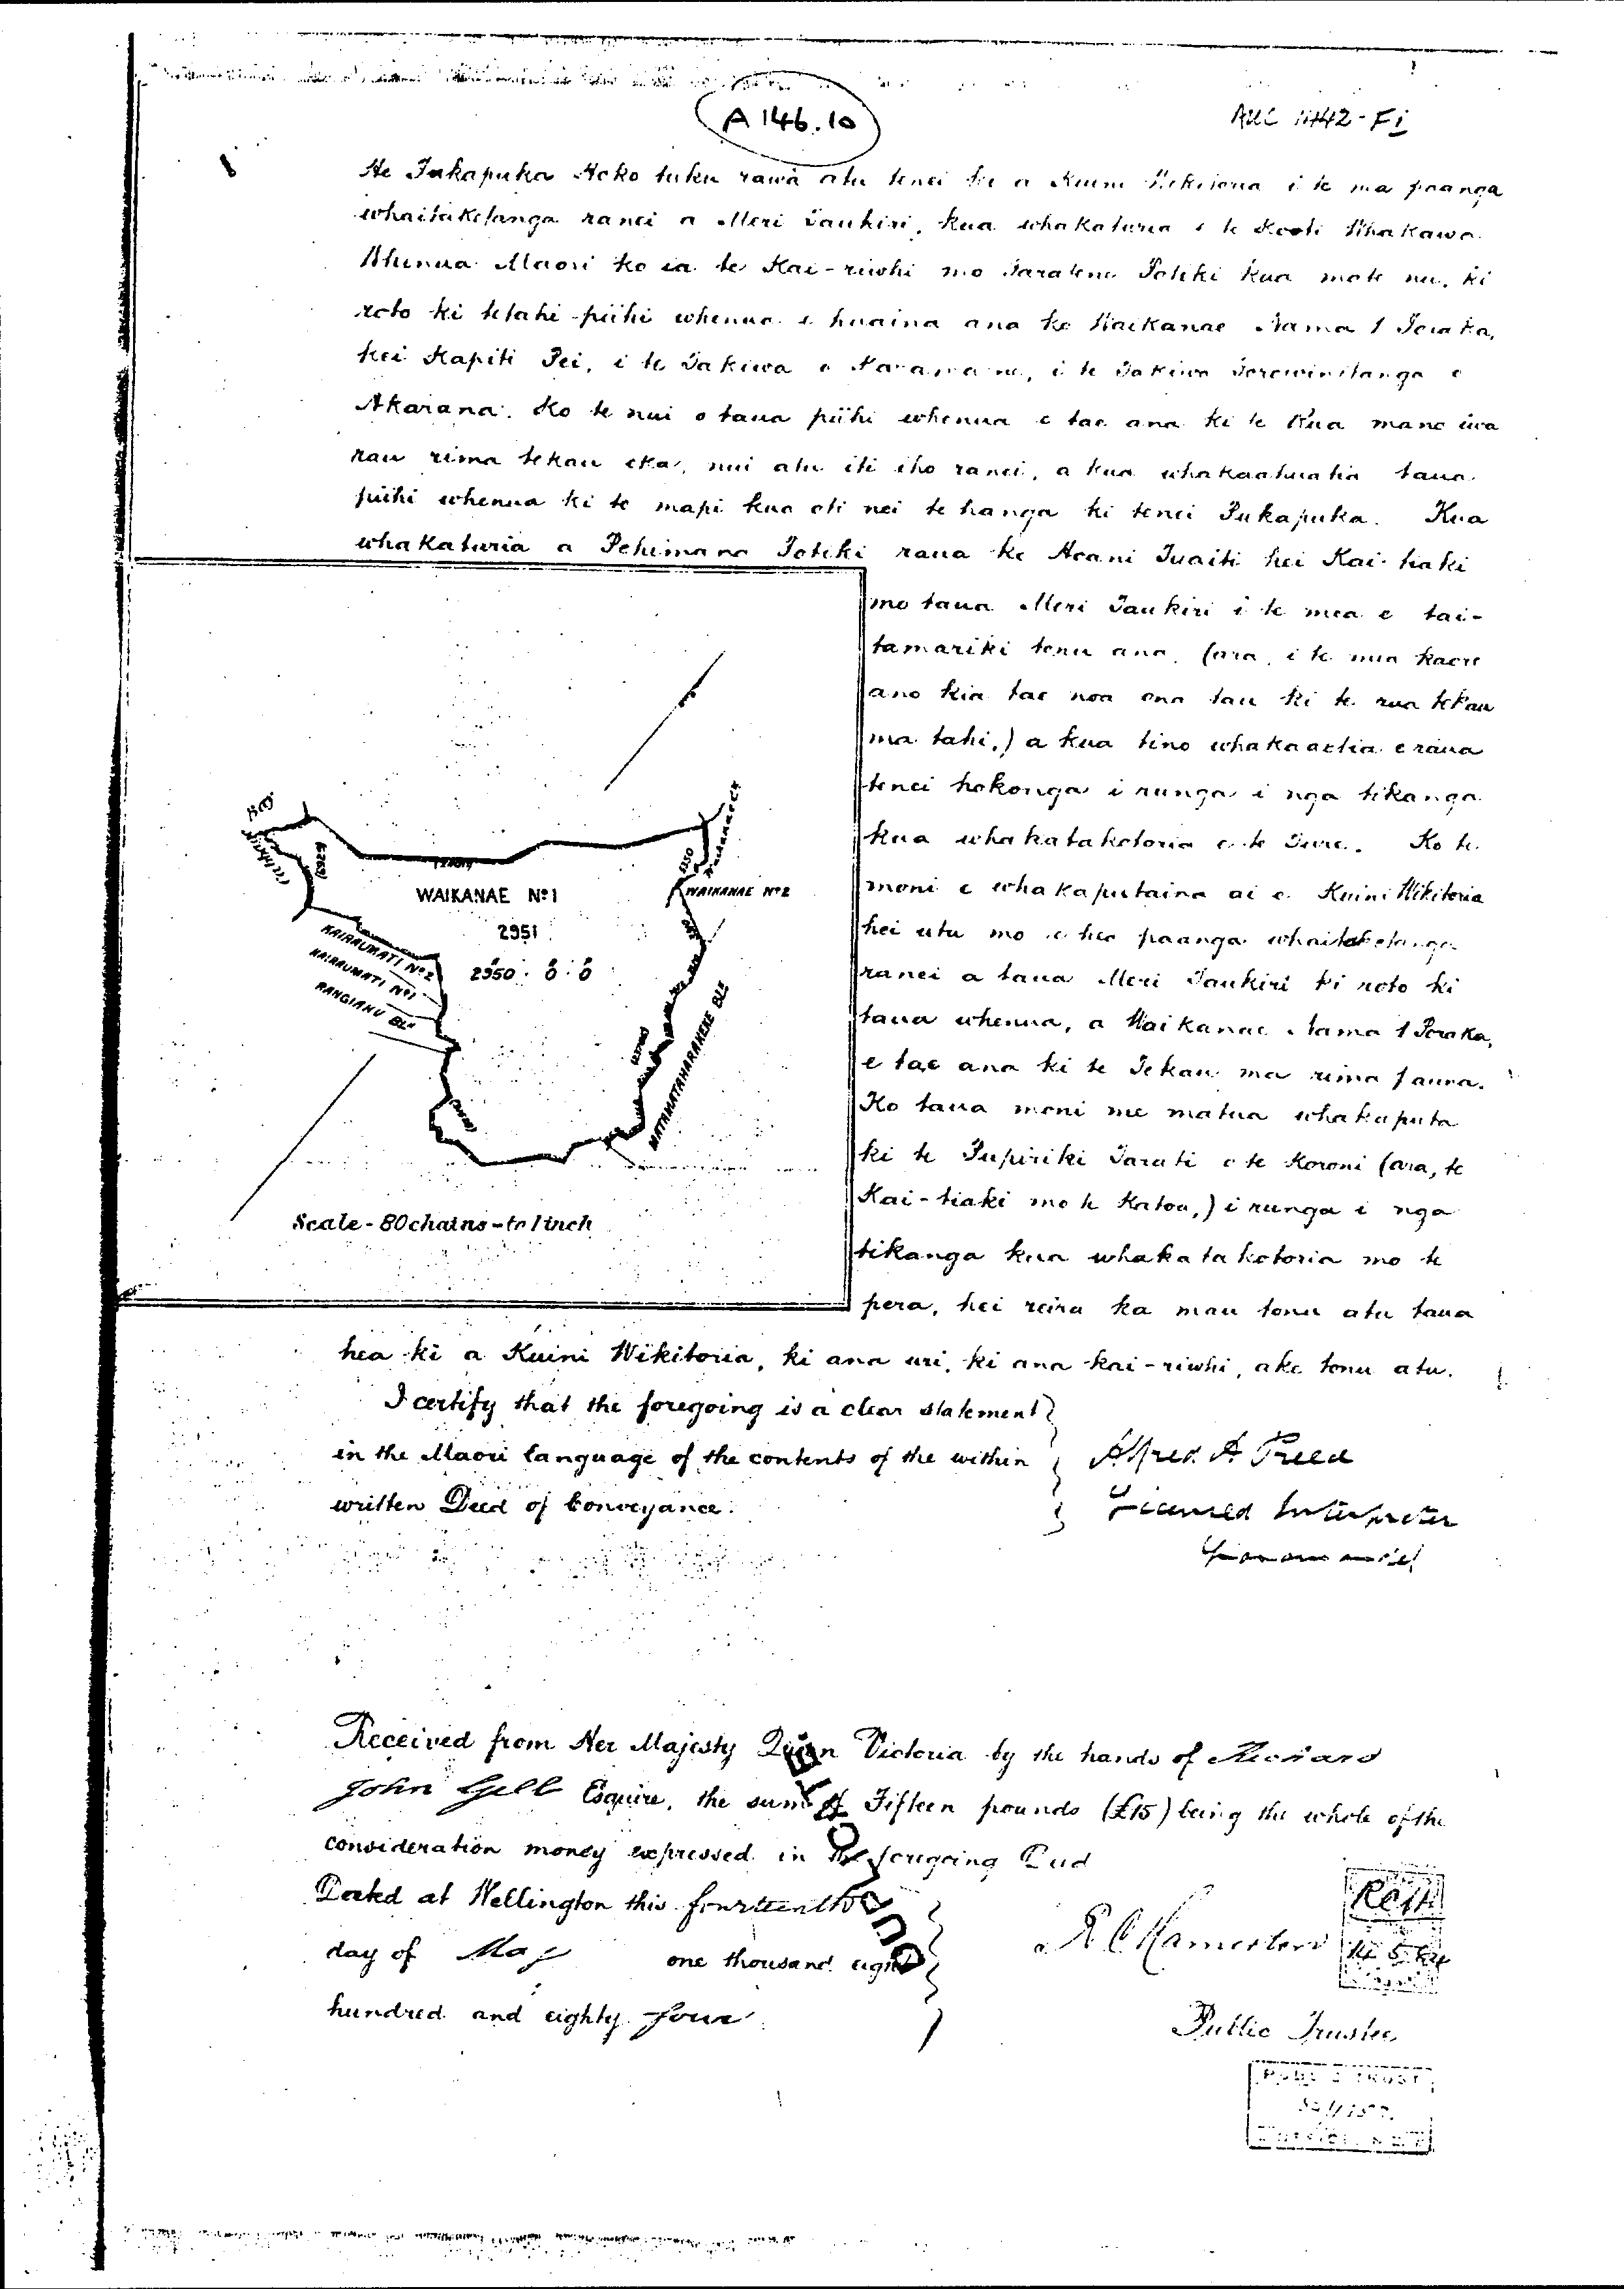 A 146.10
He Pukapuka Hoko tuku rawa atu tenei ki a Kuini Wikitoria i te ma paanga
whaitaketanga ranei a Meri Taukiri, kua whakaturia e te Kooti Whakawa
Whenua Maori ko ia te Kai-riwhi mo Potiki kua mate nei, ki
roto ki tetahi piihi whenua e huaina ana ko Waikanae Nama 1 Poraka,
kei Kapiti Pei, i te Takiwa o i te Takiwa Porowinitanga o
Akarana. Ko te nui o taua piihi whenua e tae ana ki te Rua mano iwa
rau rima tekau eka, nui atu iti iho ranei, a kua whakaaturia taua
piihi whenua ki te mapi kua oti nei te hanga ki tenei Pukapuka. Kua
whakaturia a Pehimana Potiki raua ko Hoani Tuaiti hei Kai-tiaki
mo taua Meri Taukiri i te mea e tai-
tamariki tonu ana, (ara, i te mea kaore
ano kia tae noa ona tau ki te rua tekau
ma tahi,) a kua tino whakaaetia e raua
tenei hokonga i runga i nga tikanga
kua whakatakotoria e te Ture. Ko te
moni e whakaputaina ai e Kuini Wikitoria
hei utu mo te hea paanga whaitaketanga
ranei a taua Meri Taukiri ki roto ki
taua whenua, a Waikanae Nama 1 Poraka,
e tae ana ki te Tekau ma rima pauna.
Ko taua moni me matua whakaputa
ki te Pupiriki Tarati o te Koroni (ara, te
Kai-tiaki mo te Katoa,) i runga i nga
tikanga kua whakatakotoria mo te
pera, hei reira ka mau tonu atu taua
hea ki a Kuini Wikitoria, ki ana uri, ki ana kai-riwhi, ake tonu atu.
WAIKANAE No 1
2951
2950 : 0 : 0
WAIKANAE No 2
KAIRAUMATI No 2
KAIRAUMATI No 1
RANGIAHU BLK
MATAMATAHARAKEKE BLK
Scale - 80 chains - to 1 inch
I certify that the foregoing is a clear statement
in the Maori language of the contents of the within
written Deed of Conveyance.
Alfred A Freed
Licensed Interpreter
Received from Her Majesty Queen Victoria by the hands of Richard
John Gill Esquire, the sum of Fifteen pounds (£15) being the whole of the
consideration money expressed in the foregoing Deed
Dated at Wellington this fourteenth
day of May one thousand eight
hundred and eighty four
R C Hamerton
Public Trustee